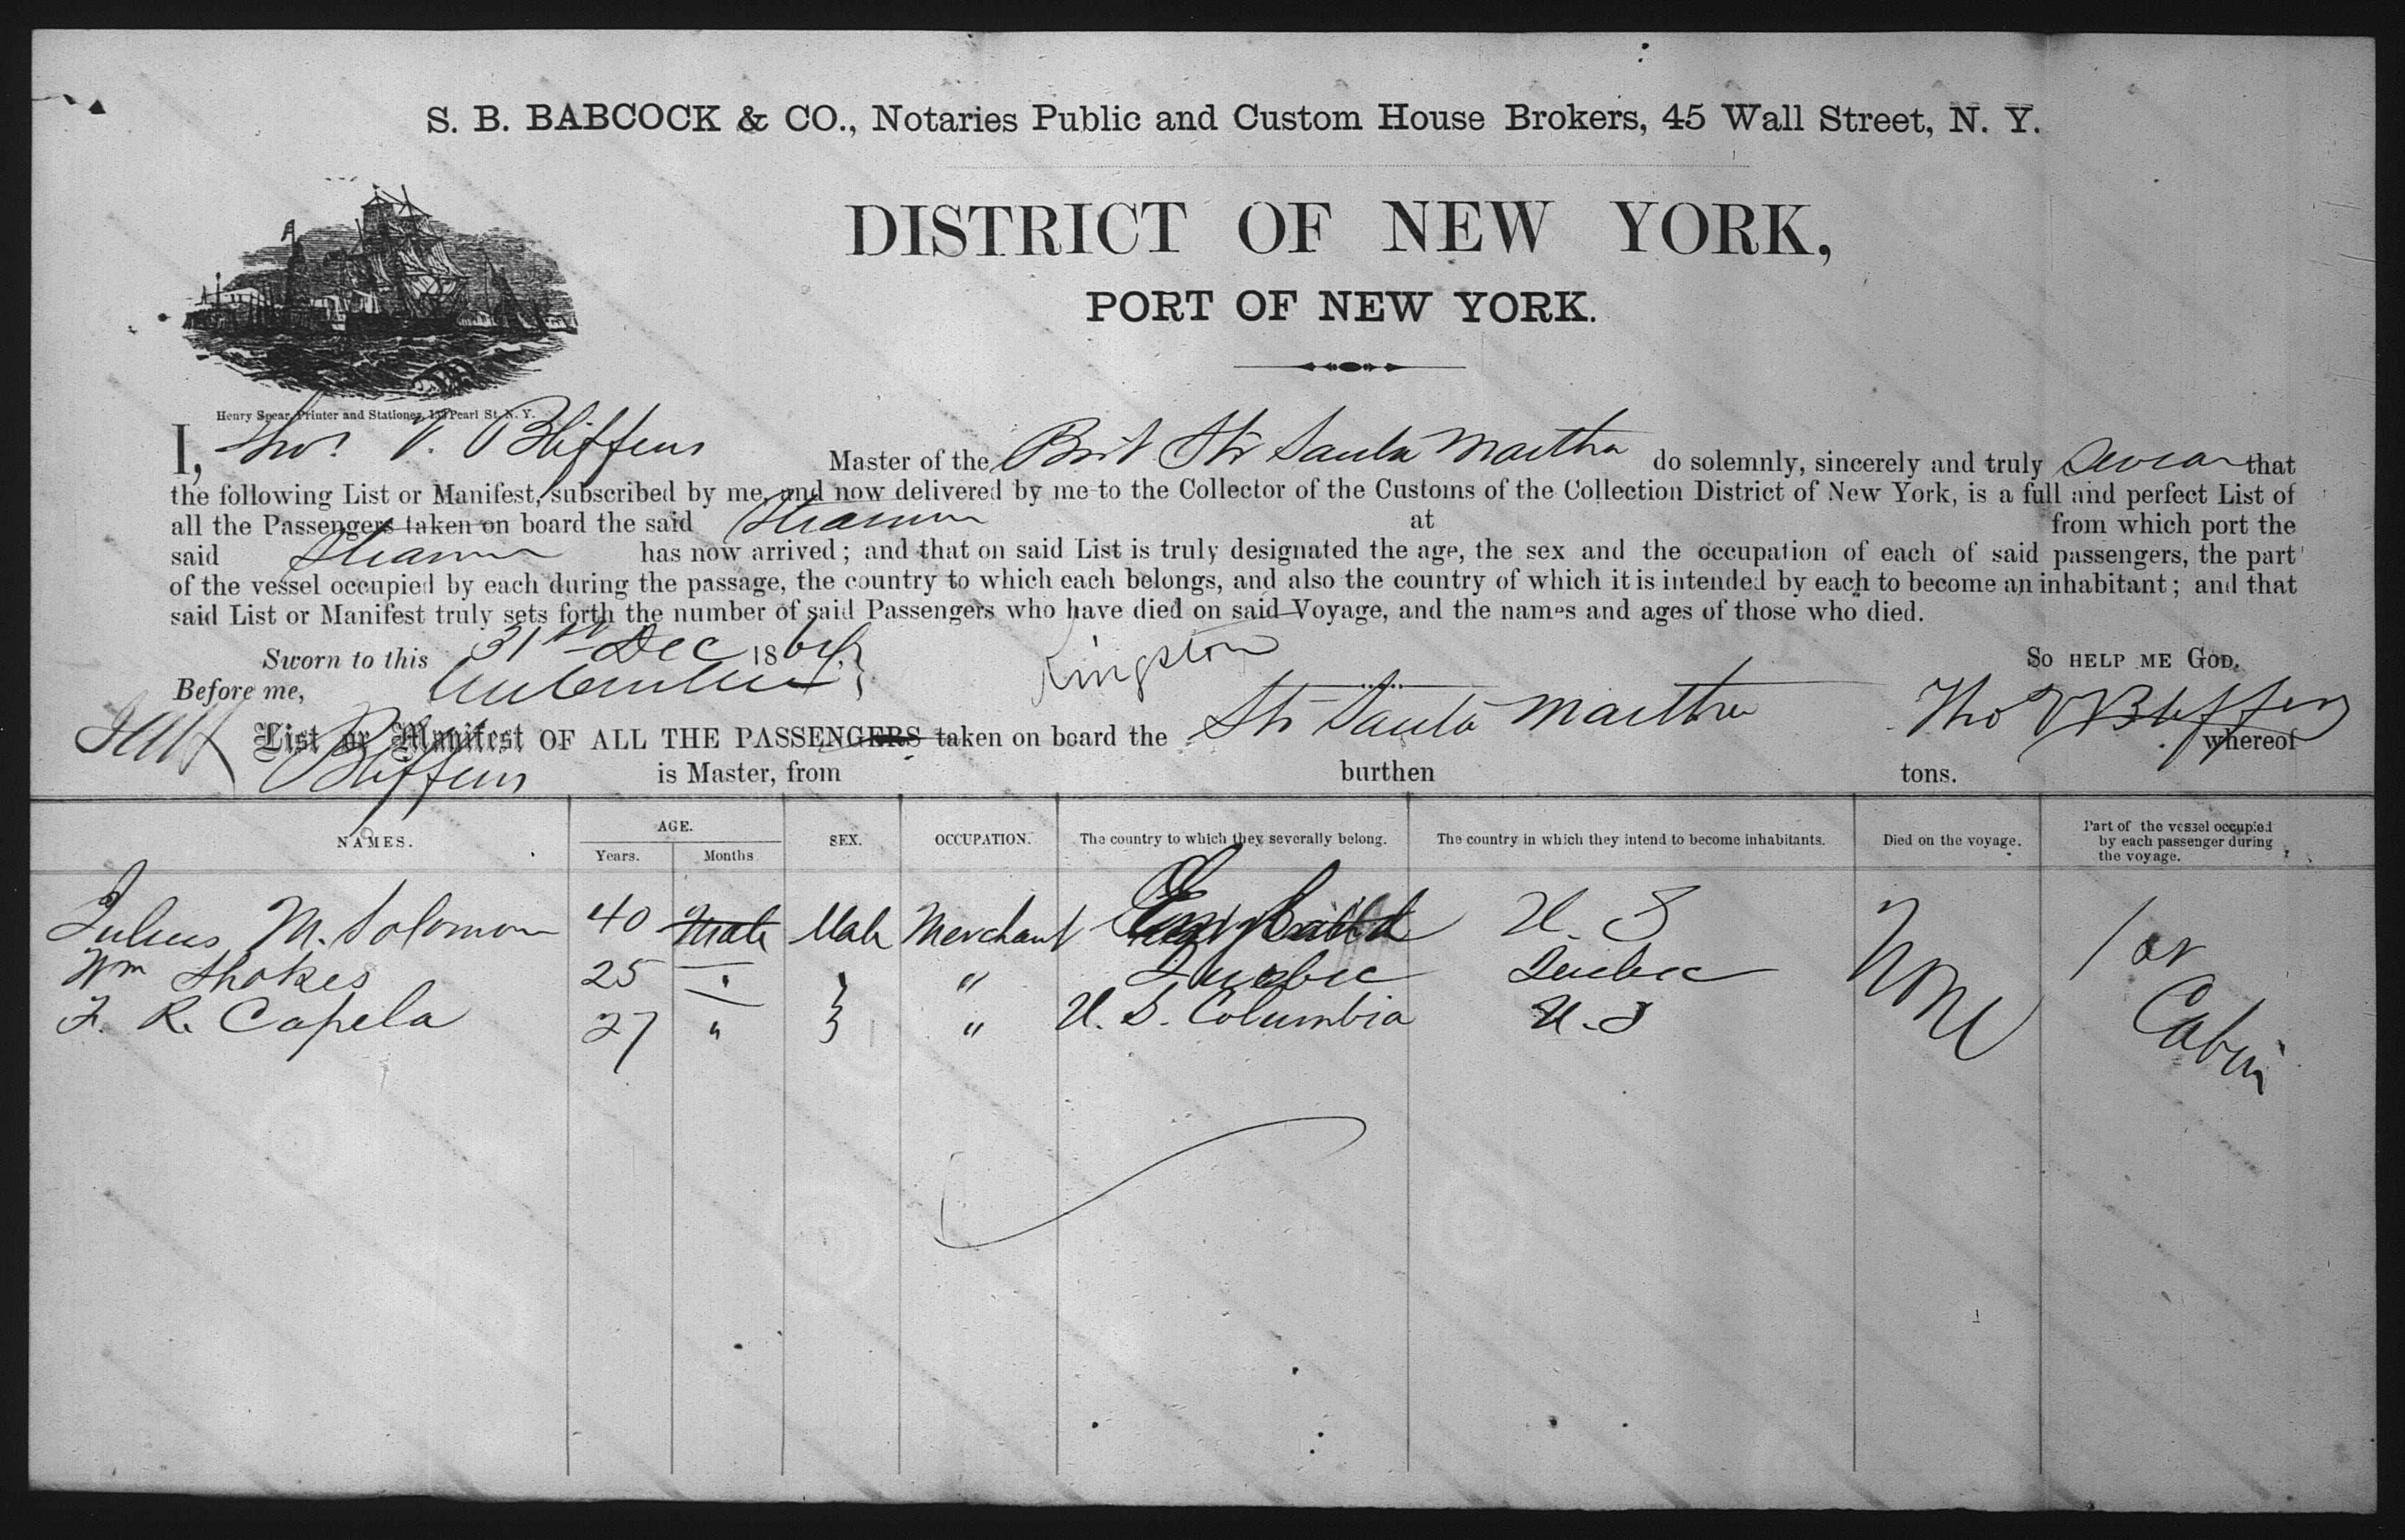 S. B. BABCOCK & CO., Notaries Public and Custom House Brokers, 45 Wall Street, N. Y.
DISTRICT OF NEW YORK,
PORT OF NEW YORK.
Henry Spear, Printer and Stationer, 133 Pearl St. N. Y.
I, Thos. V. Bliffens Master of the Brit Str Santa Martha do solemnly, sincerely and truly swear that
the following List or Manifest, subscribed by me, and now delivered by me to the Collector of the Customs of the Collection District of New York, is a full and perfect List of
all the Passengers taken on board the said Steamer at from which port the
said Steamer has now arrived; and that on said List is truly designated the age, the sex and the occupation of each of said passengers, the part
of the vessel occupied by each during the passage, the country to which each belongs, and also the country of which it is intended by each to become an inhabitant; and that
said List or Manifest truly sets forth the number of said Passengers who have died on said Voyage, and the names and ages of those who died.
Sworn to this 31st Dec 1864, Kingston SO HELP ME GOD.
Before me, Thos V Bliffens
List or Manifest OF ALL THE PASSENGERS taken on board the Str Santa Martha whereof
Bliffens is Master, from burthen tons.
NAMES. AGE. Years. Months SEX. OCCUPATION. The country to which they severally belong. The country in which they intend to become inhabitants. Died on the voyage. Part of the vessel occupied by each passenger during the voyage.
Julius M. Solomon 40 Male Male Merchant U. S None 1 or Cabin
Wm Shokes 25 " " Quebec Quebec
F. R. Capela 27 " " U. S. Columbia U. S